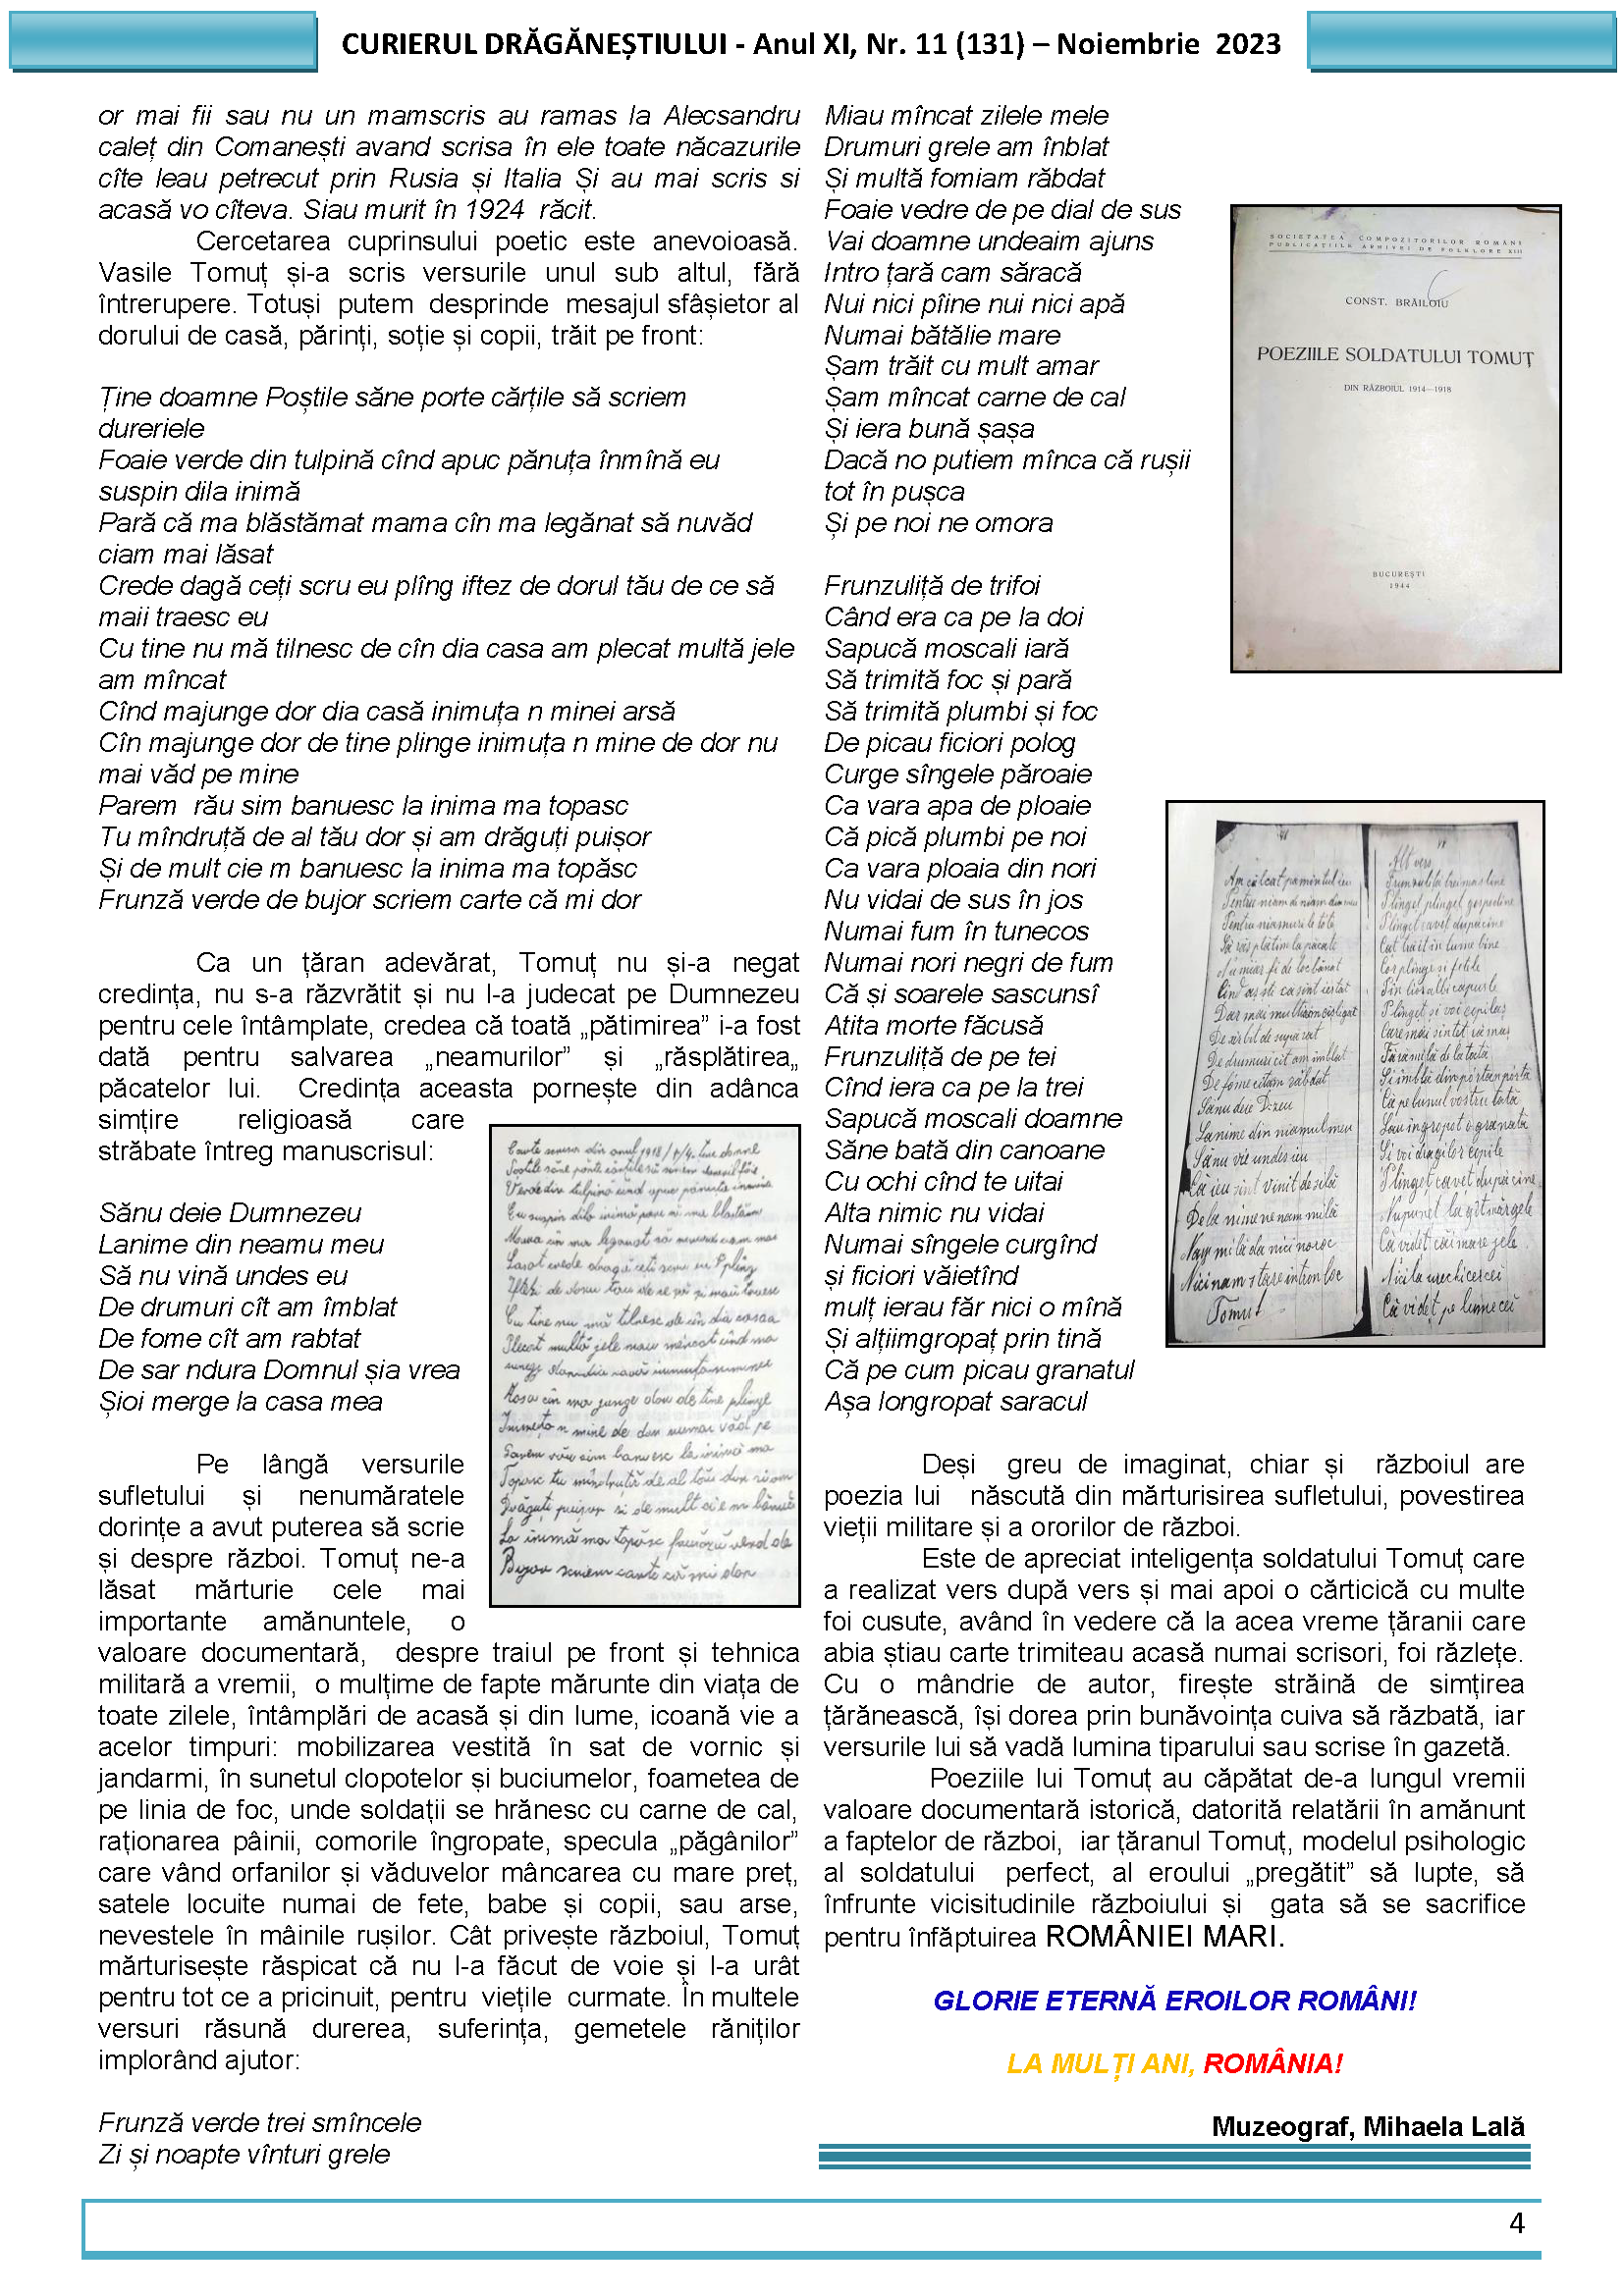 CURIERUL DRĂGĂNEȘTIULUI - Anul XI, Nr. 11 (131) – Noiembrie 2023
or mai fii sau nu un mamscris au ramas la Alecsandru
caleț din Comanești avand scrisa în ele toate năcazurile
cîte leau petrecut prin Rusia și Italia Și au mai scris si
acasă vo cîteva. Siau murit în 1924 răcit.
Cercetarea cuprinsului poetic este anevoioasă.
Vasile Tomuț și-a scris versurile unul sub altul, fără
întrerupere. Totuși putem desprinde mesajul sfâșietor al
dorului de casă, părinți, soție și copii, trăit pe front:
Ține doamne Poștile săne porte cărțile să scriem
dureriele
Foaie verde din tulpină cînd apuc pănuța înmînă eu
suspin dila inimă
Pară că ma blăstămat mama cîn ma legănat să nuvăd
ciam mai lăsat
Crede dagă ceți scru eu plîng iftez de dorul tău de ce să
maii traesc eu
Cu tine nu mă tilnesc de cîn dia casa am plecat multă jele
am mîncat
Cînd majunge dor dia casă inimuța n minei arsă
Cîn majunge dor de tine plinge inimuța n mine de dor nu
mai văd pe mine
Parem rău sim banuesc la inima ma topasc
Tu mîndruță de al tău dor și am drăguți puișor
Și de mult cie m banuesc la inima ma topăsc
Frunză verde de bujor scriem carte că mi dor
Ca un țăran adevărat, Tomuț nu și-a negat
credința, nu s-a răzvrătit și nu l-a judecat pe Dumnezeu
pentru cele întâmplate, credea că toată „pătimirea” i-a fost
dată pentru salvarea „neamurilor” și „răsplătirea„
păcatelor lui. Credința aceasta pornește din adânca
simțire religioasă care
străbate întreg manuscrisul:
Sănu deie Dumnezeu
Lanime din neamu meu
Să nu vină undes eu
De drumuri cît am îmblat
De fome cît am rabtat
De sar ndura Domnul șia vrea
Șioi merge la casa mea
Pe lângă versurile
sufletului și nenumăratele
dorințe a avut puterea să scrie
și despre război. Tomuț ne-a
lăsat mărturie cele mai
importante amănuntele, o
valoare documentară, despre traiul pe front și tehnica
militară a vremii, o mulțime de fapte mărunte din viața de
toate zilele, întâmplări de acasă și din lume, icoană vie a
acelor timpuri: mobilizarea vestită în sat de vornic și
jandarmi, în sunetul clopotelor și buciumelor, foametea de
pe linia de foc, unde soldații se hrănesc cu carne de cal,
raționarea pâinii, comorile îngropate, specula „păgânilor”
care vând orfanilor și văduvelor mâncarea cu mare preț,
satele locuite numai de fete, babe și copii, sau arse,
nevestele în mâinile rușilor. Cât privește războiul, Tomuț
mărturisește răspicat că nu l-a făcut de voie și l-a urât
pentru tot ce a pricinuit, pentru viețile curmate. În multele
versuri răsună durerea, suferința, gemetele răniților
implorând ajutor:
Frunză verde trei smîncele
Zi și noapte vînturi grele
Miau mîncat zilele mele
Drumuri grele am înblat
Și multă fomiam răbdat
Foaie vedre de pe dial de sus
Vai doamne undeaim ajuns
Intro țară cam săracă
Nui nici pîine nui nici apă
Numai bătălie mare
Șam trăit cu mult amar
Șam mîncat carne de cal
Și iera bună șașa
Dacă no putiem mînca că rușii
tot în pușca
Și pe noi ne omora
Frunzuliță de trifoi
Când era ca pe la doi
Sapucă moscali iară
Să trimită foc și pară
Să trimită plumbi și foc
De picau ficiori polog
Curge sîngele păroaie
Ca vara apa de ploaie
Că pică plumbi pe noi
Ca vara ploaia din nori
Nu vidai de sus în jos
Numai fum în tunecos
Numai nori negri de fum
Că și soarele sascunsî
Atita morte făcusă
Frunzuliță de pe tei
Cînd iera ca pe la trei
Sapucă moscali doamne
Săne bată din canoane
Cu ochi cînd te uitai
Alta nimic nu vidai
Numai sîngele curgînd
și ficiori văietînd
mulț ierau făr nici o mînă
Și alțiimgropaț prin tină
Că pe cum picau granatul
Așa longropat saracul
SOCIETATEA COMPOZITORILOR ROMÂNI
PUBLICAȚIILE ARHIVEI DE FOLKLORE XIII
CONST. BRĂILOIU
POEZIILE SOLDATULUI TOMUȚ
DIN RĂZBOIUL 1914—1918
BUCUREȘTI
1944
Deși greu de imaginat, chiar și războiul are
poezia lui născută din mărturisirea sufletului, povestirea
vieții militare și a ororilor de război.
Este de apreciat inteligența soldatului Tomuț care
a realizat vers după vers și mai apoi o cărticică cu multe
foi cusute, având în vedere că la acea vreme țăranii care
abia știau carte trimiteau acasă numai scrisori, foi răzlețe.
Cu o mândrie de autor, firește străină de simțirea
țărănească, își dorea prin bunăvoința cuiva să răzbată, iar
versurile lui să vadă lumina tiparului sau scrise în gazetă.
Poeziile lui Tomuț au căpătat de-a lungul vremii
valoare documentară istorică, datorită relatării în amănunt
a faptelor de război, iar țăranul Tomuț, modelul psihologic
al soldatului perfect, al eroului „pregătit” să lupte, să
înfrunte vicisitudinile războiului și gata să se sacrifice
pentru înfăptuirea ROMÂNIEI MARI.
GLORIE ETERNĂ EROILOR ROMÂNI!
LA MULȚI ANI, ROMÂNIA!
Muzeograf, Mihaela Lală
4